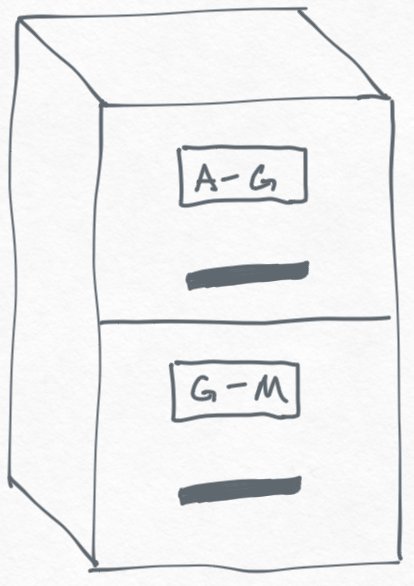 A-G
G-M